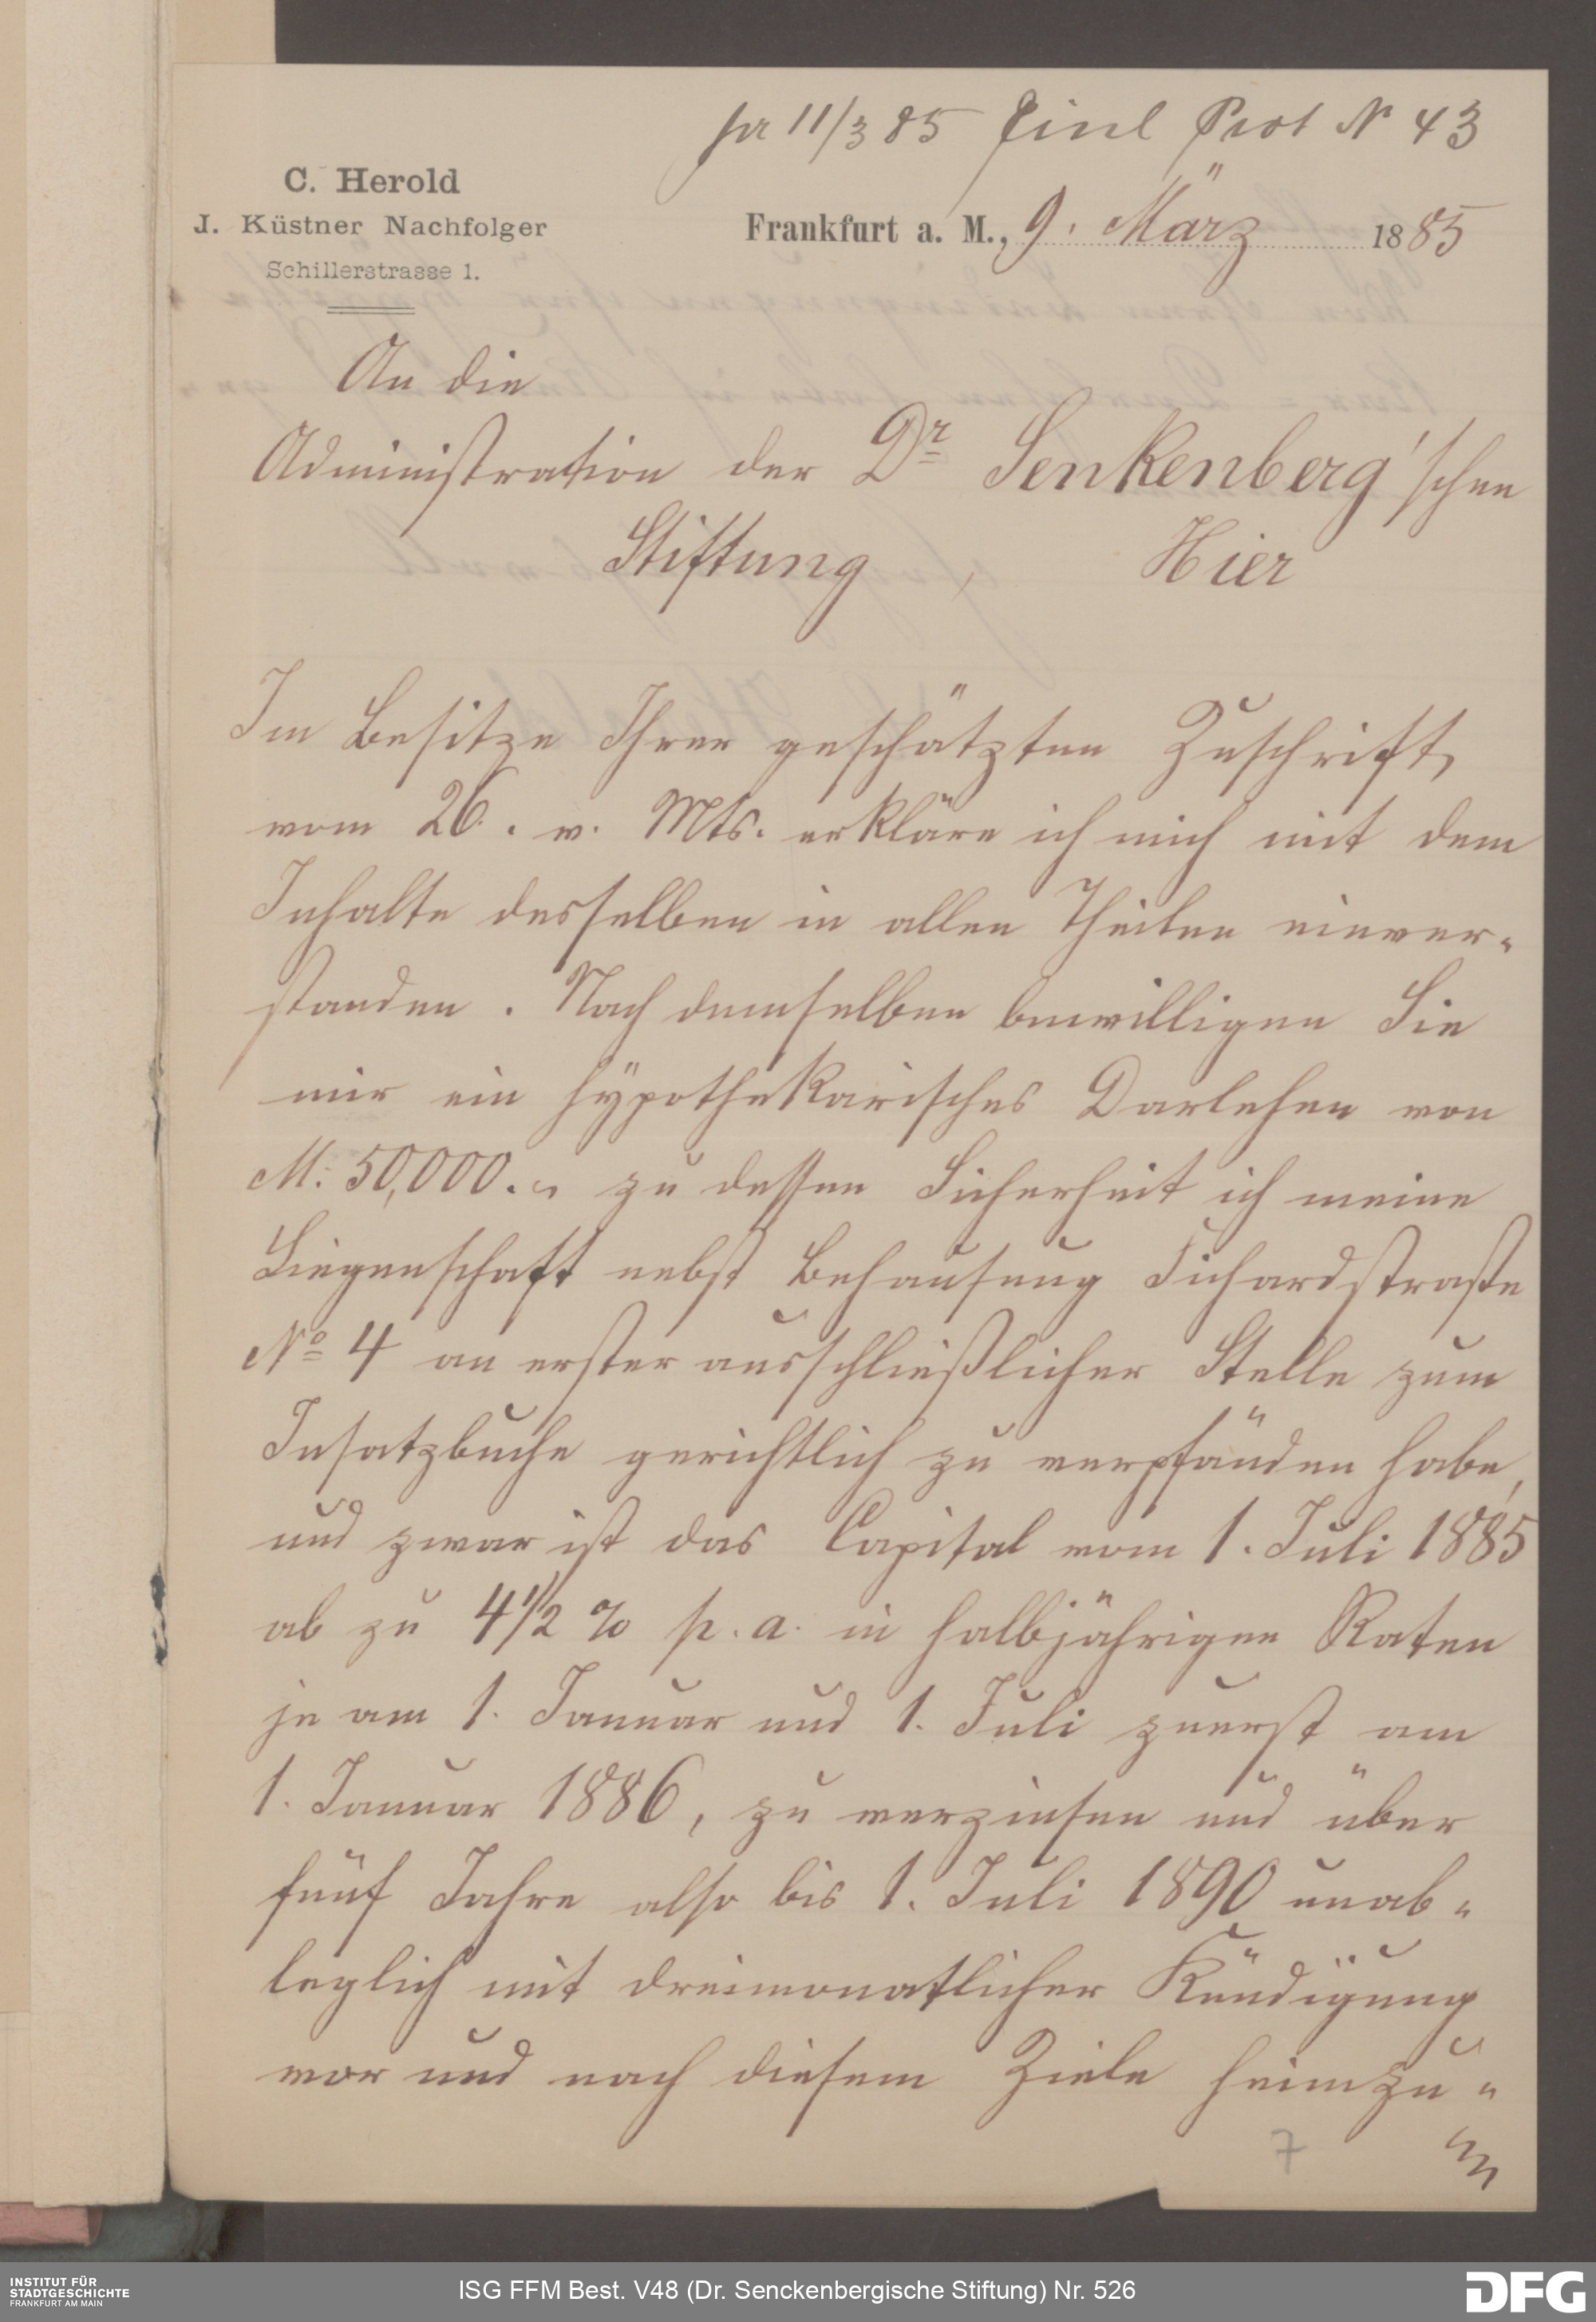 pr 11/3 85 Einl Prot N 43
C. Herold
J. Küstner Nachfolger
Schillerstrasse 1.
Frankfurt a. M., 9. März 1885
An die
Administration der Dr Senkenberg'schen
Stiftung, Hier
Im Besitze Ihrer geschätzten Zuschrift
vom 26. v. Mts. erkläre ich mich mit dem
Inhalte desselben in allen Theilen einver-
standen. Nach demselben bewilligen Sie
mir ein hÿpothekarisches Darlehen von
M. 50,000.- zu dessen Sicherheit ich meine
Liegenschaft nebst Behausung Fichardstraße
No 4 an erster ausschließlicher Stelle zum
Insatzbuche gerichtlich zu verpfänden habe,
und zwar ist das Capital vom 1. Juli 1885
ab zu 4 1/2 % p. a. in halbjährigen Raten
je am 1. Januar und 1. Juli zuerst am
1. Januar 1886, zu verzinsen und über
fünf Jahre also bis 1. Juli 1890 unab-
leglich mit dreimonatlicher Kündigung
vor und nach diesem Ziele heimzu-
7
INSTITUT FÜR
STADTGESCHICHTE
FRANKFURT AM MAIN
ISG FFM Best. V48 (Dr. Senckenbergische Stiftung) Nr. 526
DFG